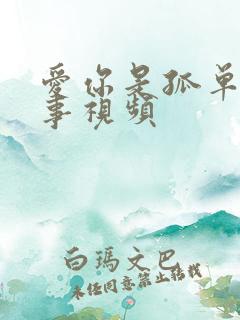 愛你是孤單
事視頻
白瑪文巴
未经同意禁止转载